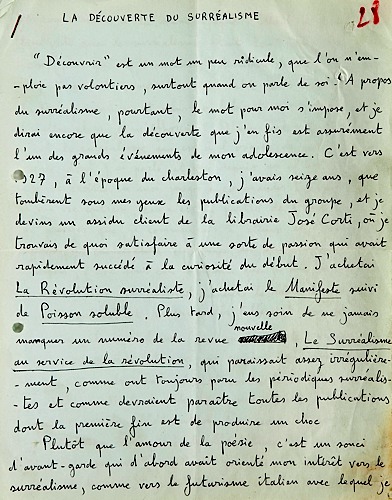 LA DÉCOUVERTE DU SURRÉALISME
28
"Découvrir" est un mot un peu ridicule, que l'on n'em-
ploie pas volontiers, surtout quand on parle de soi. A propos
du surréalisme, pourtant, le mot pour moi s'impose, et je
dirai encore que la découverte que j'en fis est assurément
l'un des grands événements de mon adolescence. C'est vers
1927, à l'époque du charleston, j'avais seize ans, que
tombèrent sous mes yeux les publications du groupe, et je
devins un assidu client de la librairie José Corti, où je
trouvais de quoi satisfaire à une sorte de passion qui avait
rapidement succédé à la curiosité du début. J'achetai
La Révolution surréaliste, j'achetai le Manifeste suivi
de Poisson soluble. Plus tard, j'eus soin de ne jamais
nouvelle
manquer un numéro de la revue, Le Surréalisme
au service de la révolution, qui paraissait assez irrégulière-
-ment, comme ont toujours paru les périodiques surréalis-
-tes et comme devraient paraître toutes les publications
dont la première fin est de produire un choc
Plutôt que l'amour de la poésie, c'est un souci
d'avant-garde qui d'abord avait orienté mon intérêt vers le
surréalisme, comme vers le futurisme italien avec lequel je